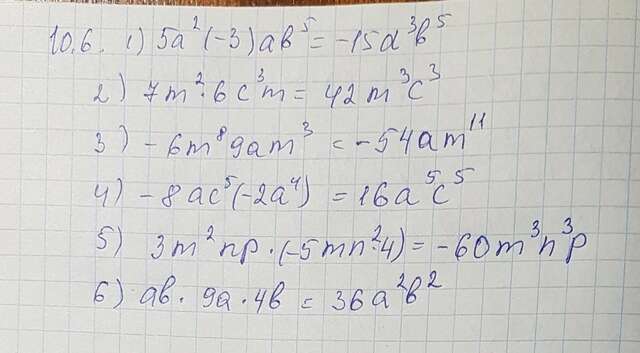 10.6. 1) 5a²(-3)ab⁵ = -15a³b⁵
2) 7m²·6c³m = 42m³c³
3) -6m⁸9am³ = -54am¹¹
4) -8ac⁵(-2a⁴) = 16a⁵c⁵
5) 3m²np·(-5mn²·4) = -60m³n³p
6) ab·9a·4b = 36a²b²